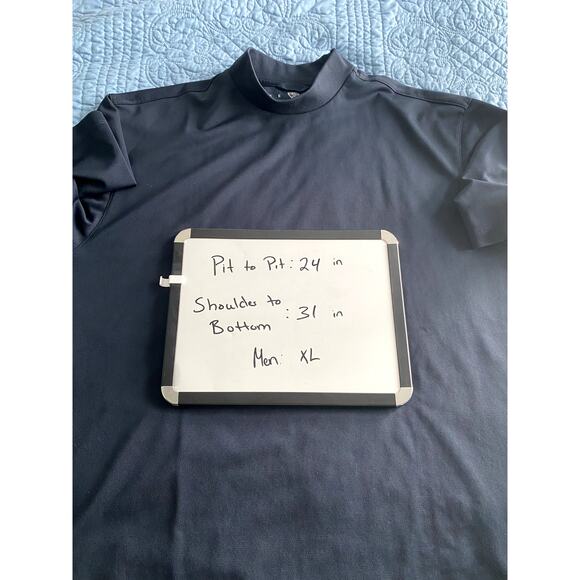 Pit to Pit: 24 in
Shoulder to
Bottom : 31 in
Men: XL